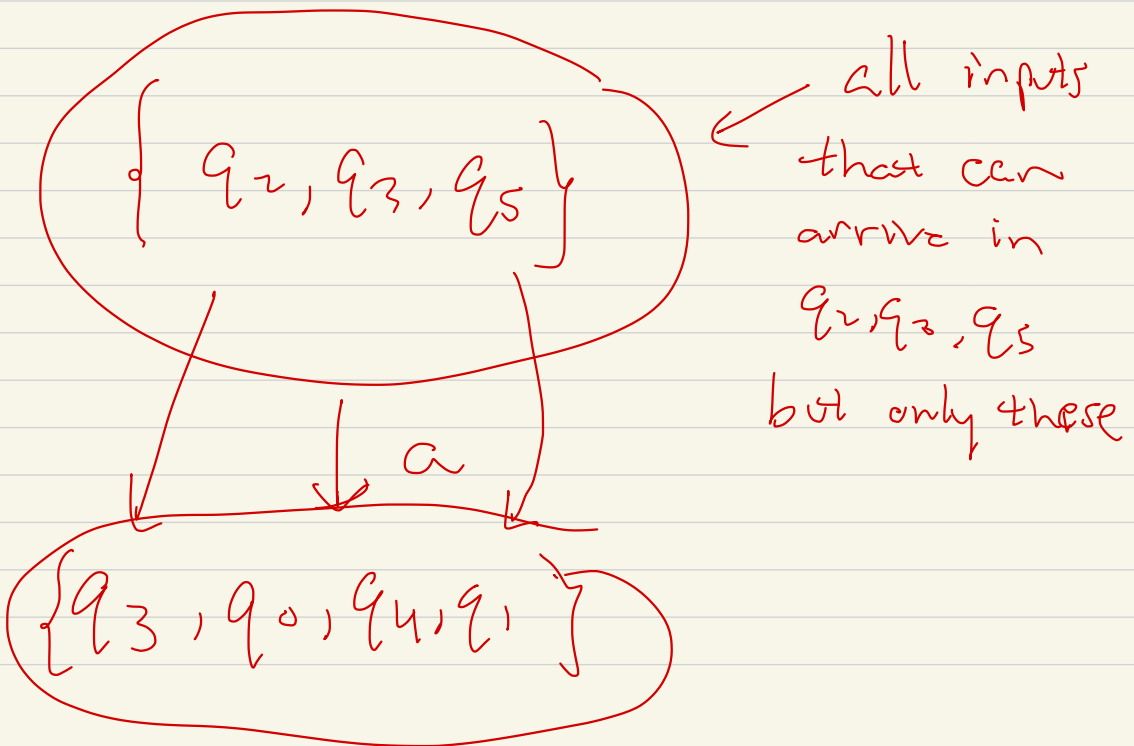 { q₂, q₃, q₅ }
all inputs
that can
arrive in
q₂, q₃, q₅
but only these
a
{ q₃, q₀, q₄, q₁ }